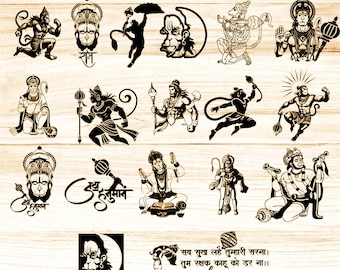 राम
जय हनुमान
जय हनुमान
सब सुख लहै तुम्हारी सरना।
तुम रक्षक काहू को डर ना।।